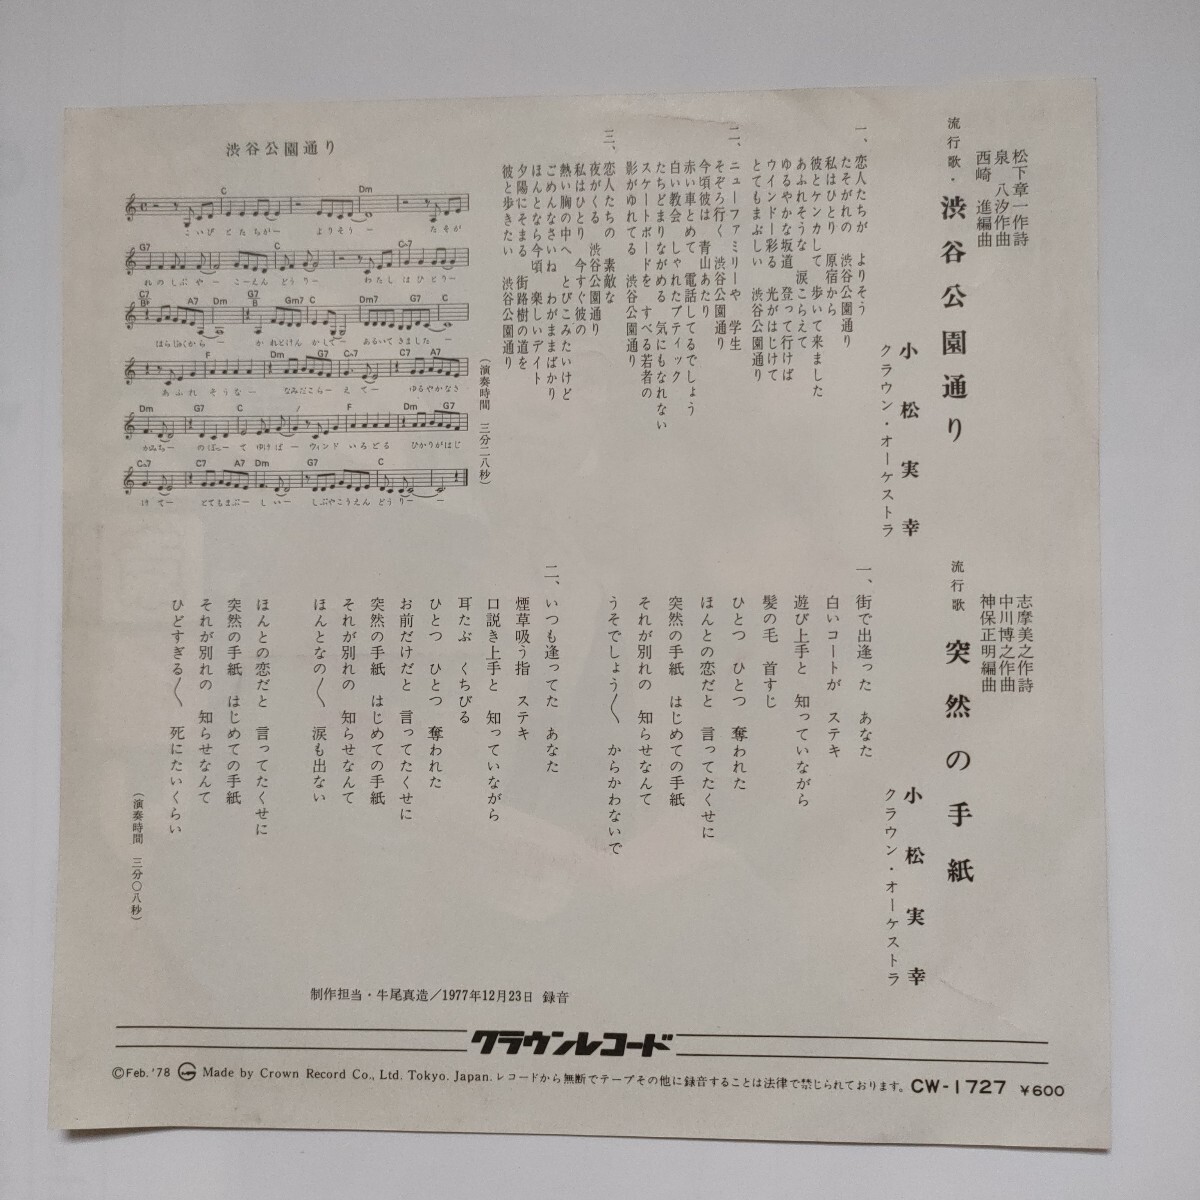 松下章一作詩
泉八汐作曲
西崎進編曲
流行歌・渋谷公園通り
小松実幸
クラウン・オーケストラ
一、恋人たちが よりそう
たそがれの 渋谷公園通り
私はひとり 原宿から
彼とケンカして 歩いて来ました
あふれそうな 涙こらえて
ゆるやかな坂道 登って行けば
ウインドー彩る 光がはじけて
とてもまぶしい 渋谷公園通り
二、ニューファミリーや 学生
そぞろ行く 渋谷公園通り
今頃彼は 青山あたり
赤い車とめて 電話してるでしょう
白い教会 しゃれたブティック
たちどまりながめる 気にもなれない
スケートボードを すべる若者の
影がゆれてる 渋谷公園通り
三、恋人たちの 素敵な
夜がくる 渋谷公園通り
私はひとり 今すぐ彼の
熱い胸の中へ とびこみたいけど
ごめんなさいね わがままばかり
ほんとなら今頃 楽しいデイト
夕陽にそまる 街路樹の道を
彼と歩きたい 渋谷公園通り
(演奏時間 三分二八秒)
渋谷公園通り
C Dm
こいびとたちがー よりそうー たそが
G7 C C♯7
れのしぶやー こーえんどうりー わたしはひとりー
C7 A7 Dm G7 Gm7 C Dm7 G7 C
はらじゅくからー かれとけんかしてー あるいてきましたー
F Dm G7 C C7 A7
あふれそうなー なみだこらーえてー ゆるやかなさ
Dm G7 C F Dm G7
かみちー のぼってゆけばー ウィンドいろどる ひかりがはじ
C7 A7 Dm G7 C
けてー とてもまぶーしいー しぶやこうえんどうりーー
志摩美之作詩
中川博之作曲
神保正明編曲
流行歌 突然の手紙
小松実幸
クラウン・オーケストラ
一、街で出逢った あなた
白いコートが ステキ
遊び上手と 知っていながら
髪の毛 首すじ
ひとつ ひとつ 奪われた
ほんとの恋だと 言ってたくせに
突然の手紙 はじめての手紙
それが別れの 知らせなんて
うそでしょう〱 からかわないで
二、いつも逢ってた あなた
煙草吸う指 ステキ
口説き上手と 知っていながら
耳たぶ くちびる
ひとつ ひとつ 奪われた
お前だけだと 言ってたくせに
突然の手紙 はじめての手紙
それが別れの 知らせなんて
ほんとなの〱 涙も出ない
ほんとの恋だと 言ってたくせに
突然の手紙 はじめての手紙
それが別れの 知らせなんて
ひどすぎる〱 死にたいくらい
(演奏時間 三分〇八秒)
制作担当・牛尾真造/1977年12月23日 録音
クラウンレコード
©Feb.'78 Made by Crown Record Co., Ltd. Tokyo. Japan. レコードから無断でテープその他に録音することは法律で禁じられております。 CW-1727 ¥600